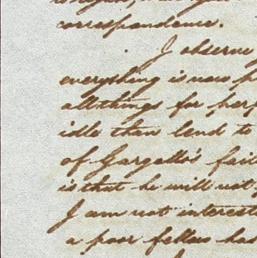 correspondence.
I observe
everything is now p
all things for, perf
idle than lend to
of Gargallo's fail
is that he will not
I am not interest
a poor fellow has